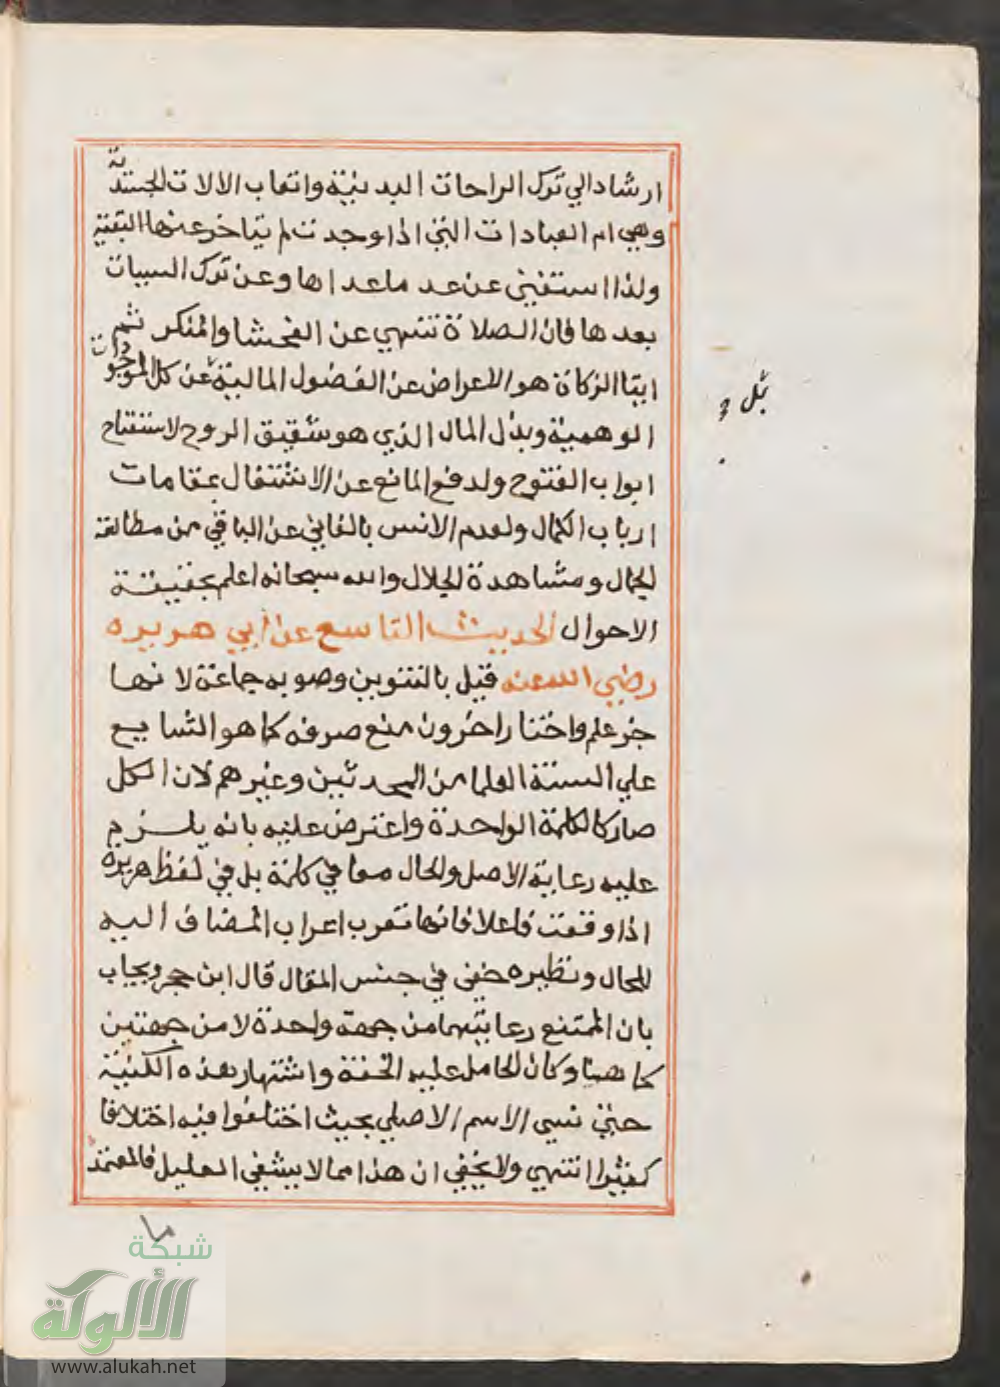 ارشاد الي ترك الراحات البدنية واتعاب الالات الجسدية
وهي ام العبادات التي اذا وجدت لم يتاخر عنها البقية
ولذا استغني عن عد ما عداها وعن ترك السيات
بعدها فان الصلاة تنهي عن الفحشا والمنكر ثم
ايتا الزكاة هو الاعراض عن الفضول المالية عن كل الموجودات
الوهمية وبذل المال الذي هو شقيق الروح لاستفتاح
ابواب الفتوح ولدفع المانع عن الاشتغال بمقامات
ارباب الكمال ولعدم الانس بالفاني عن الباقي من مطالعة
الجمال ومشاهدة الجلال والله سبحانه اعلم بحقيقة
الاحوال الحديث التاسع عن ابي هريره
رضي الله عنه قيل بالتنوين وصوبه جماعة لانها
جز علم واختار اخرون منع صرفه كما هو الشايع
علي السنة العلما من المحدثين وغيرهم لان الكل
صار كالكلمة الواحدة واعترض عليه بانه يلزم
عليه رعاية الاصل والحال معا في كلمة بل في لفظ هريره
اذا وقعت فاعلا فانها تعرب اعراب المضاف اليه
للحال ونظيره خفي في جنس المقال قال ابن حجر ويجاب
بان الممتنع رعايتهما من جهة واحدة لا من جهتين
كما هنا وكان الحامل عليه الخفة واشتهار هذه الكنية
حتي نسي الاسم الاصلي بحيث اختلفوا فيه اختلافا
كثيرا انتهي ولا يخفي ان هذا مما لا يشفي العليل فالمعتمد
بل و
ما
شبكة
الألوكة
www.alukah.net